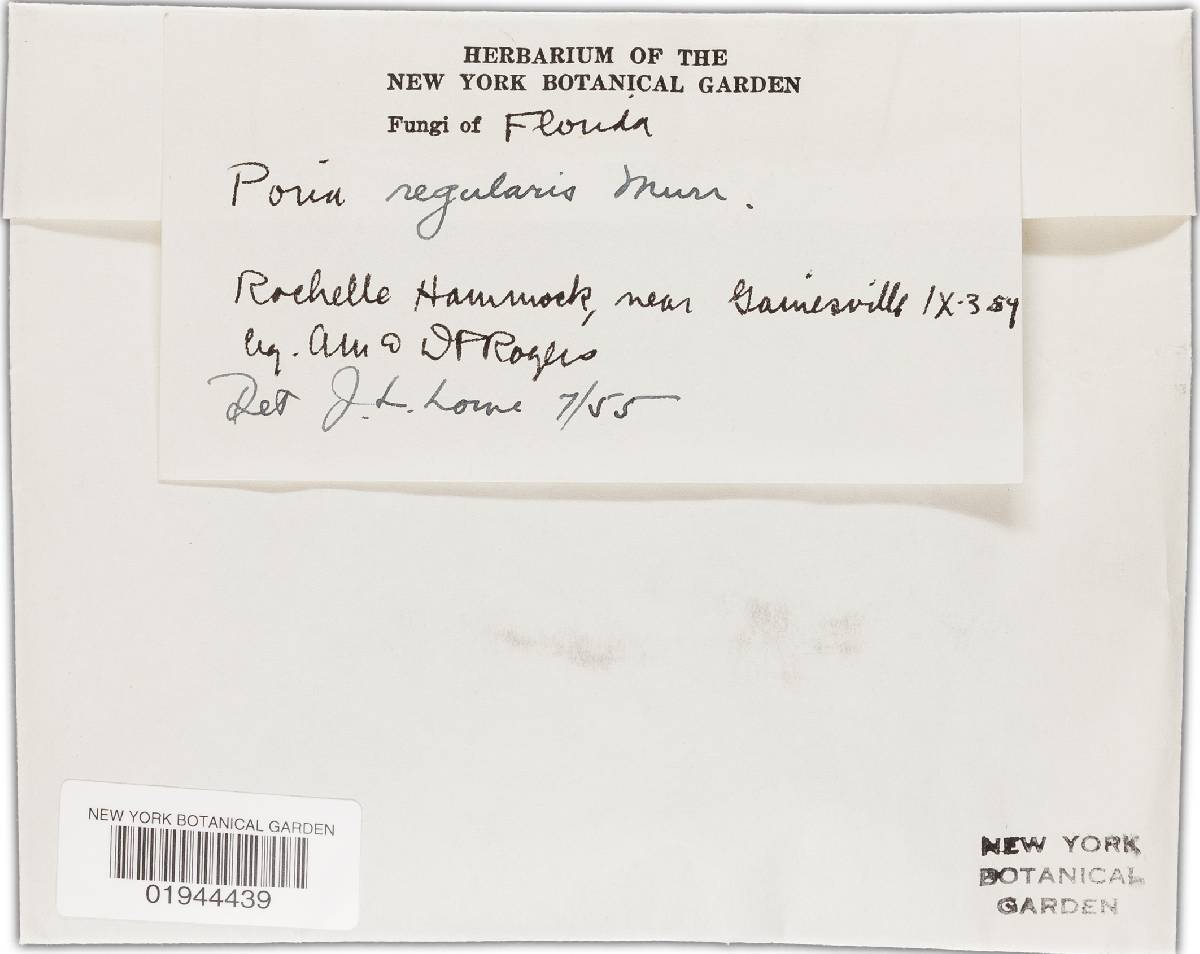 HERBARIUM OF THE
NEW YORK BOTANICAL GARDEN
Fungi of Florida
Poria regularis Murr.
Rochelle Hammock, near Gainesville IX-3-54
leg. AM & DPRogers
Det J. L. Lowe 7/55
NEW YORK BOTANICAL GARDEN
01944439
NEW YORK
BOTANICAL
GARDEN